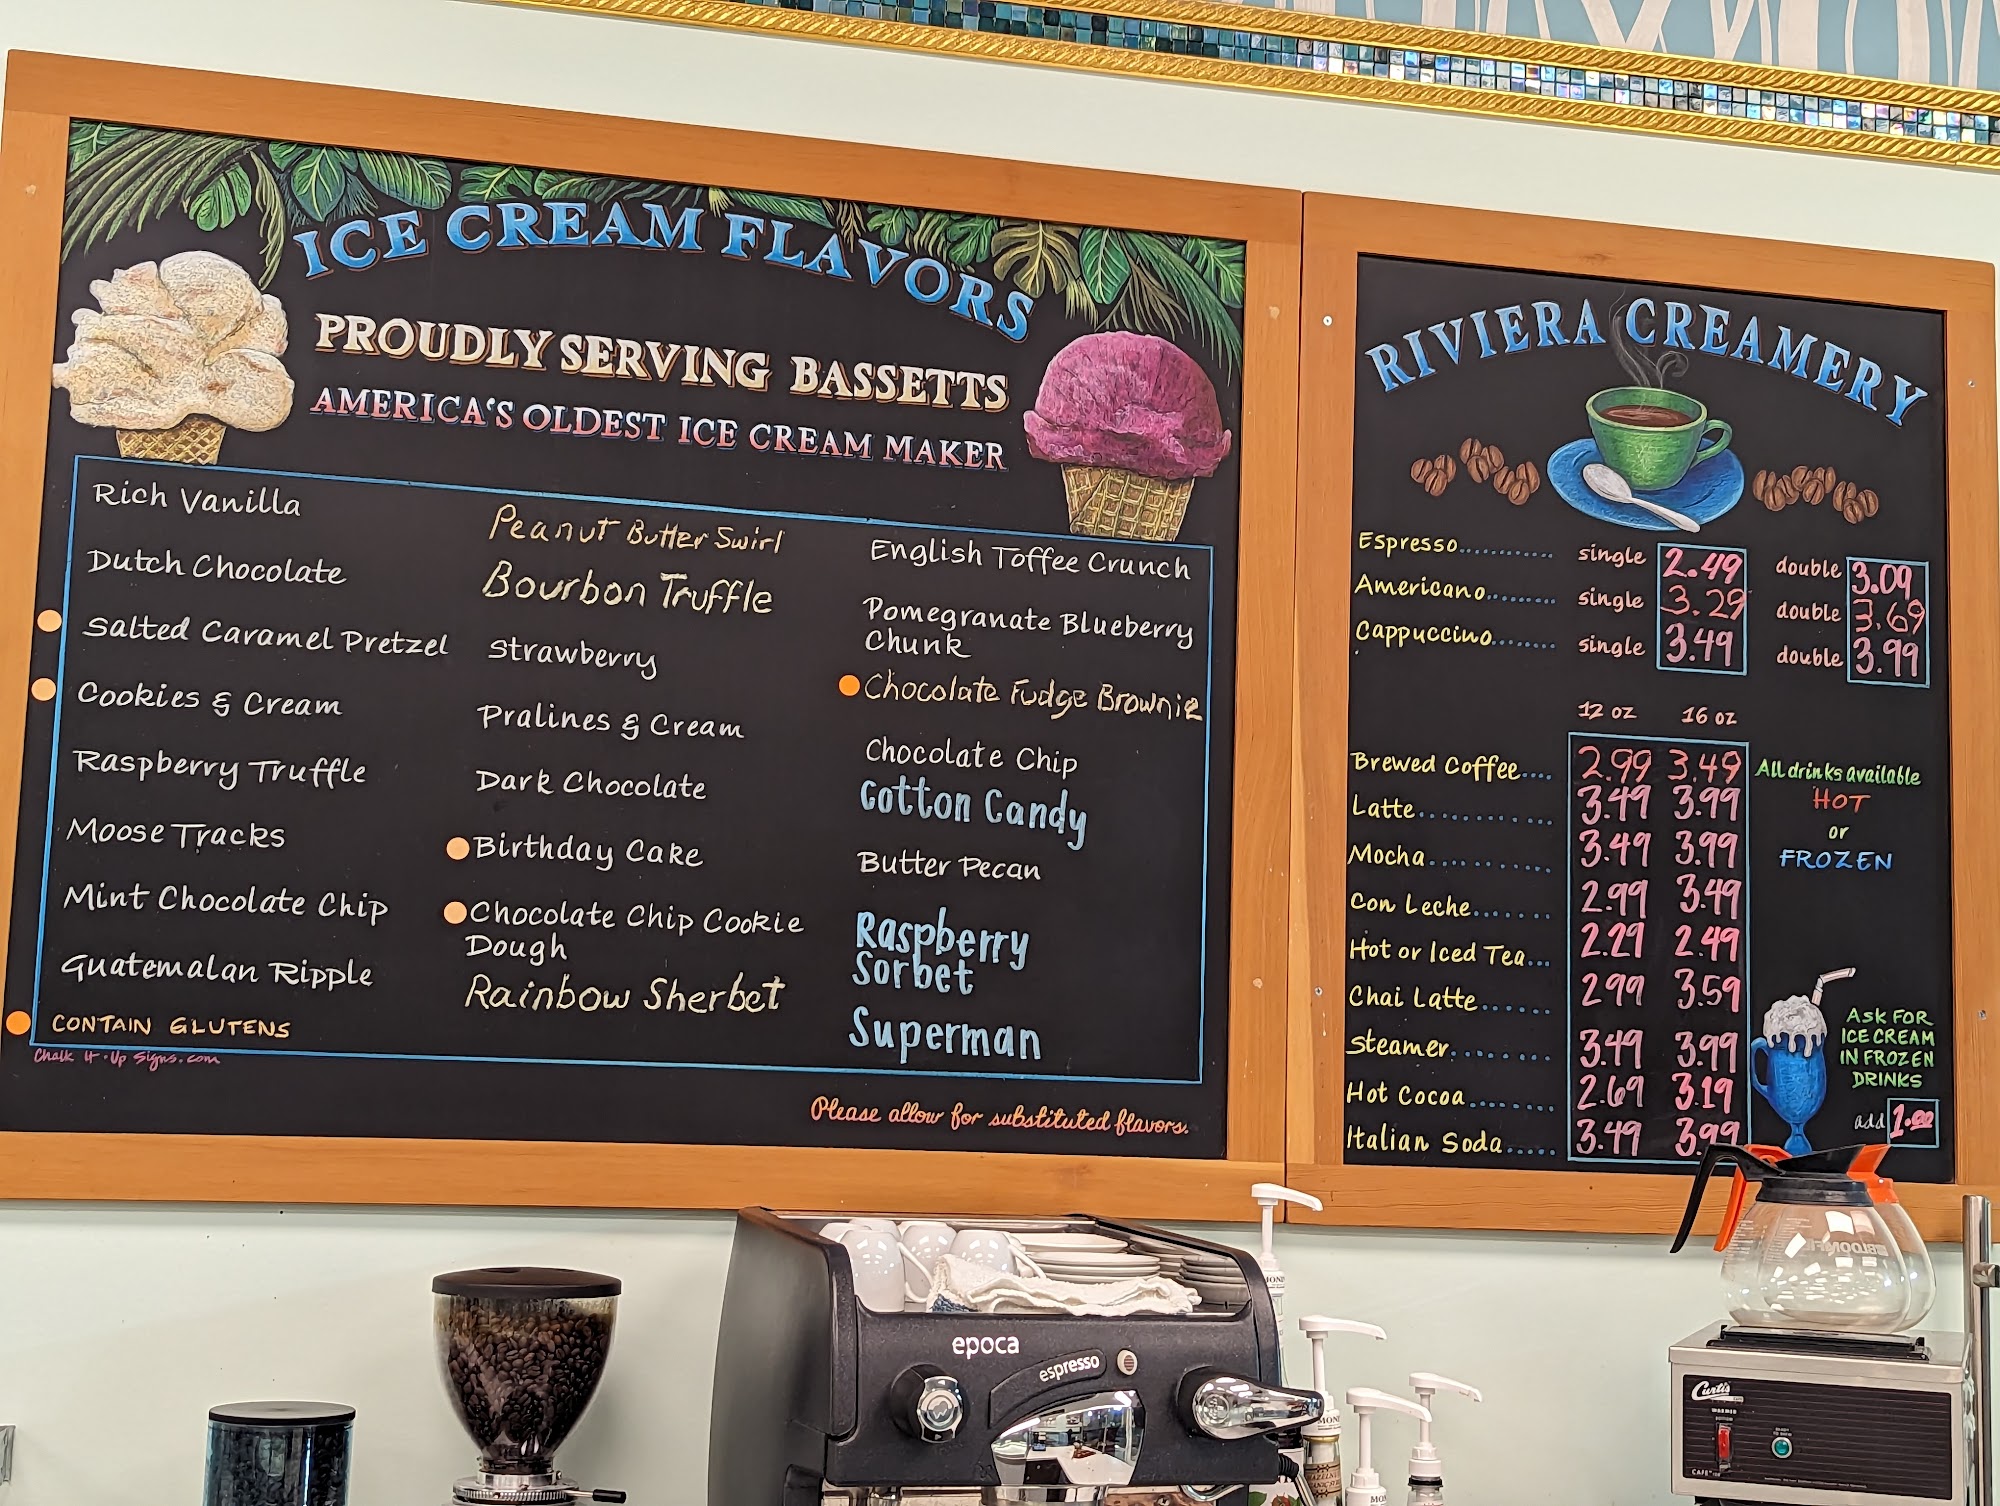 ICE CREAM FLAVORS
PROUDLY SERVING BASSETTS
AMERICA'S OLDEST ICE CREAM MAKER
Rich Vanilla
Dutch Chocolate
Salted Caramel Pretzel
Cookies & Cream
Raspberry Truffle
Moose Tracks
Mint Chocolate Chip
Guatemalan Ripple
CONTAIN GLUTENS
Chalk It·Up Signs.com
Peanut Butter Swirl
Bourbon Truffle
Strawberry
Pralines & Cream
Dark Chocolate
Birthday Cake
Chocolate Chip Cookie
Dough
Rainbow Sherbet
English Toffee Crunch
Pomegranate Blueberry
Chunk
Chocolate Fudge Brownie
Chocolate Chip
Cotton Candy
Butter Pecan
Raspberry
Sorbet
Superman
Please allow for substituted flavors.
RIVIERA CREAMERY
Espresso............ single 2.49 double 3.09
Americano......... single 3.29 double 3.69
Cappuccino........ single 3.49 double 3.99
12 oz 16 oz
Brewed Coffee.... 2.99 3.49
Latte............ 3.49 3.99
Mocha........... 3.49 3.99
Con Leche....... 2.99 3.49
Hot or Iced Tea... 2.29 2.49
Chai Latte...... 2.99 3.59
Steamer........ 3.49 3.99
Hot Cocoa........ 2.69 3.19
Italian Soda..... 3.49 3.99
All drinks available
HOT
or
FROZEN
ASK FOR
ICE CREAM
IN FROZEN
DRINKS
add 1.00
epoca
espresso
Curtis
WARMER